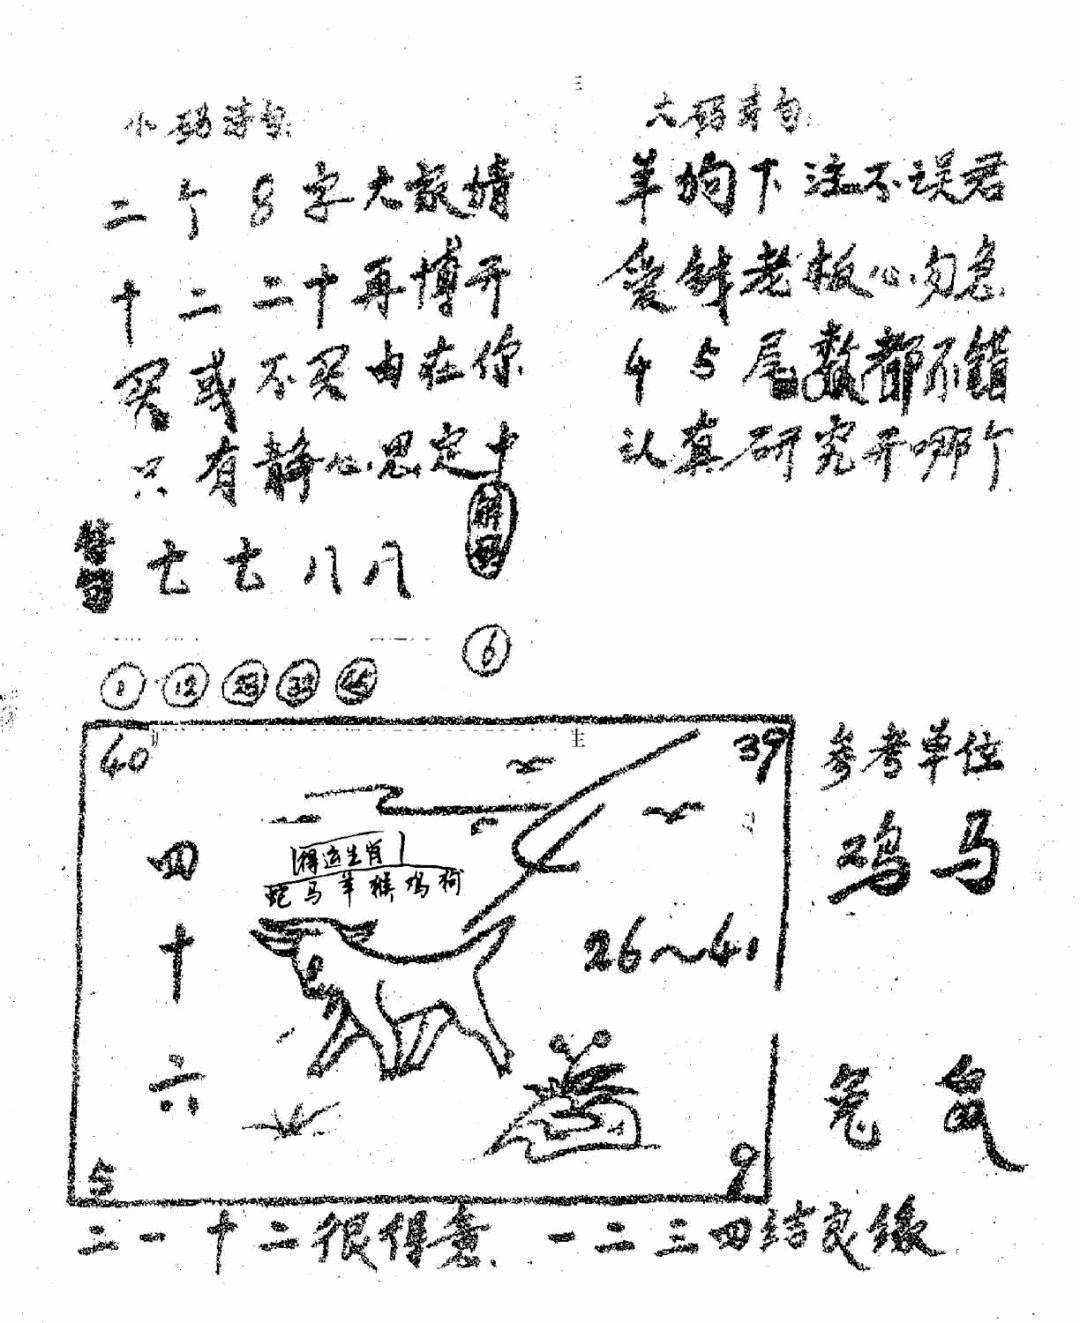 小码诗句
二个8字大教情
十二二十再博开
买或不买由在你
只有静心思定中
解码
七七八八
6
1 12 23 33
大码诗句
羊狗下注不误君
爱钱老板心勿急
45尾数都不错
认真研究开哪个
40
39
主
四十六
得运生肖
蛇马羊猴鸡狗
26~41
5
9
参考单位
鸡马
兔鼠
二一十二很得意 一二三四结良缘